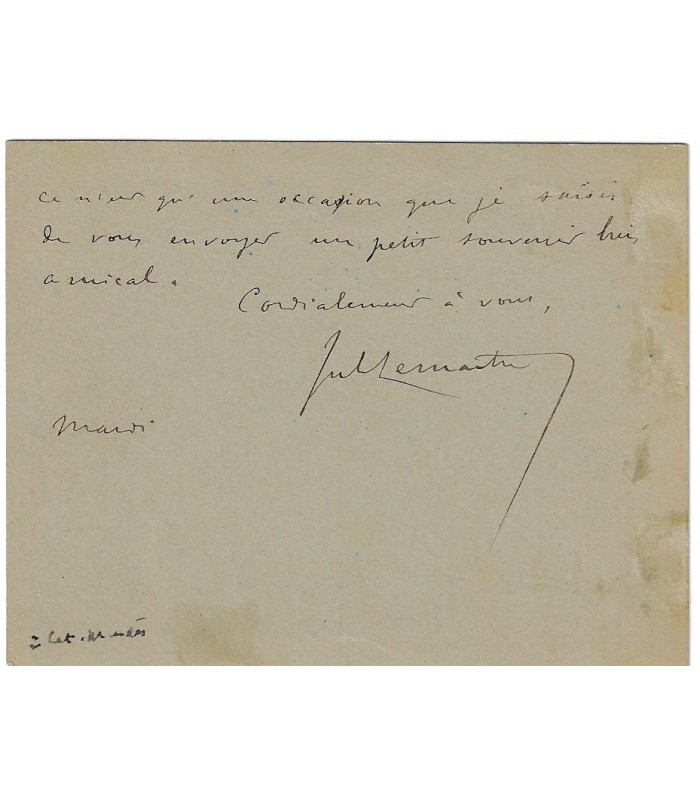 ce n'est qu'une occasion que je saisis
de vous envoyer un petit souvenir très
amical.
Cordialement à vous,
Jul Lemaitre
Mardi
Cat. Mendès